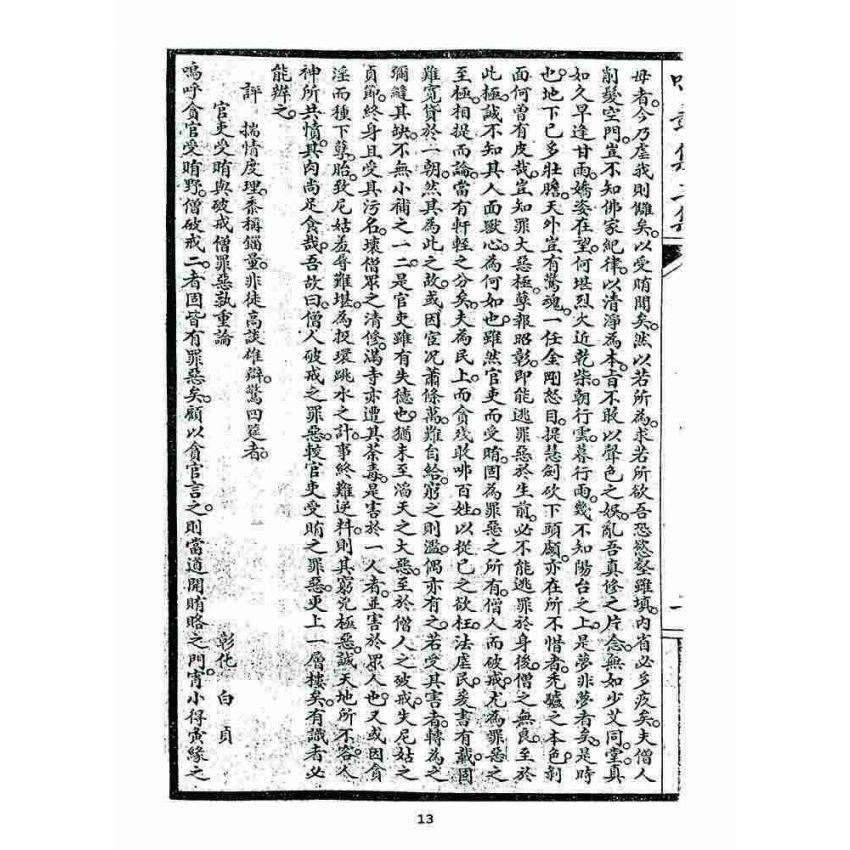 母者今乃虐我則讎矣以受賄聞矣然以若所為求若所欲吾恐慾壑雖填內省必多疚矣夫僧人
削髮空門豈不知佛家紀律以清淨為本盲不敢以聲色之娛亂吾真修之片念無如少艾同堂真
如久旱逢甘雨嬌姿在望何堪烈火近乾柴朝行雲暮行雨幾不知陽台之上是夢非夢者矣是時
也地下已多壯膽天外豈有驚魂一任金剛怒目提慧劍砍下頭顱亦在所不惜者禿驢之本色剝
面何曾有皮哉豈知罪大惡極孽報昭彰即能逃罪惡於生前必不能逃罪於身後僧之無良至於
此極誠不知其人面獸心為何如也雖然官吏而受賄固為罪惡之所有僧人而破戒尤為罪惡之
至極相提而論當有軒輊之分矣夫為民上而貪殘敢咈百姓以從己之欲枉法虐民爰書有載固
難寬貸於一朝然其為此之故或因宦况蕭條萬難自給窮之則濫偶亦有之若受其害者轉為之
彌縫其缺不無小補之一二是官吏雖有失德也猶未至滔天之大惡至於僧人之破戒失尼姑之
貞節終身且受其污名壞僧眾之清修滿寺亦遭其荼毒是害於一人者並害於眾人也又或因貪
淫而種下孽胎致尼姑羞辱難堪為投環跳水之計事終難逆料則其窮兇極惡誠天地所不容人
神所共憤其肉尚足食哉吾故曰僧人破戒之罪惡較官吏受賄之罪惡更上一層樓矣有識者必
能辨之
評 揣情度理黍稱錙量非徒高談雄辯驚四筵者
官吏受賄與破戒僧罪惡孰重論
彰化 白貞
嗚呼貪官受賄野僧破戒二者固皆有罪惡矣顧以貪官言之則當道開賄賂之門宵小得夤緣之
13